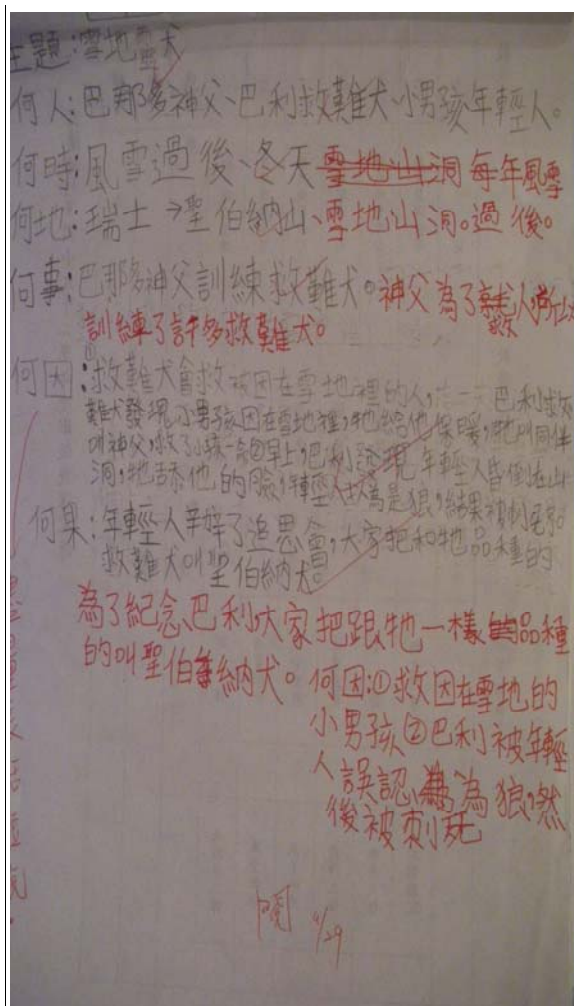 主題:雪地靈犬
何人:巴那多神父、巴利救難犬、小男孩年輕人。
何時:風雪過後、冬天 雪地山洞 每年風雪
何地:瑞士→聖伯納山、雪地山洞。過後。
何事:巴那多神父訓練救難犬。神父為了救人,所以
訓練了許多救難犬。
何因:①救難犬會救被困在雪地裡的人,有一天巴利救
難犬發現小男孩困在雪地裡,牠給他保暖,牠叫同伴
叫神父,救了小孩一命②早上,巴利發現年輕人昏倒在山
洞,牠舔他的臉,年輕人以為是狼,結果被刺死
何果:年輕人辛辦了追思會,大家把和牠品種的
救難犬叫聖伯納犬。
為了紀念巴利大家把跟牠一樣的品種
的叫聖伯納犬。
何因:①救困在雪地的
小男孩②巴利被年輕
人誤認為為狼,然
後被刺死
閱 9/29